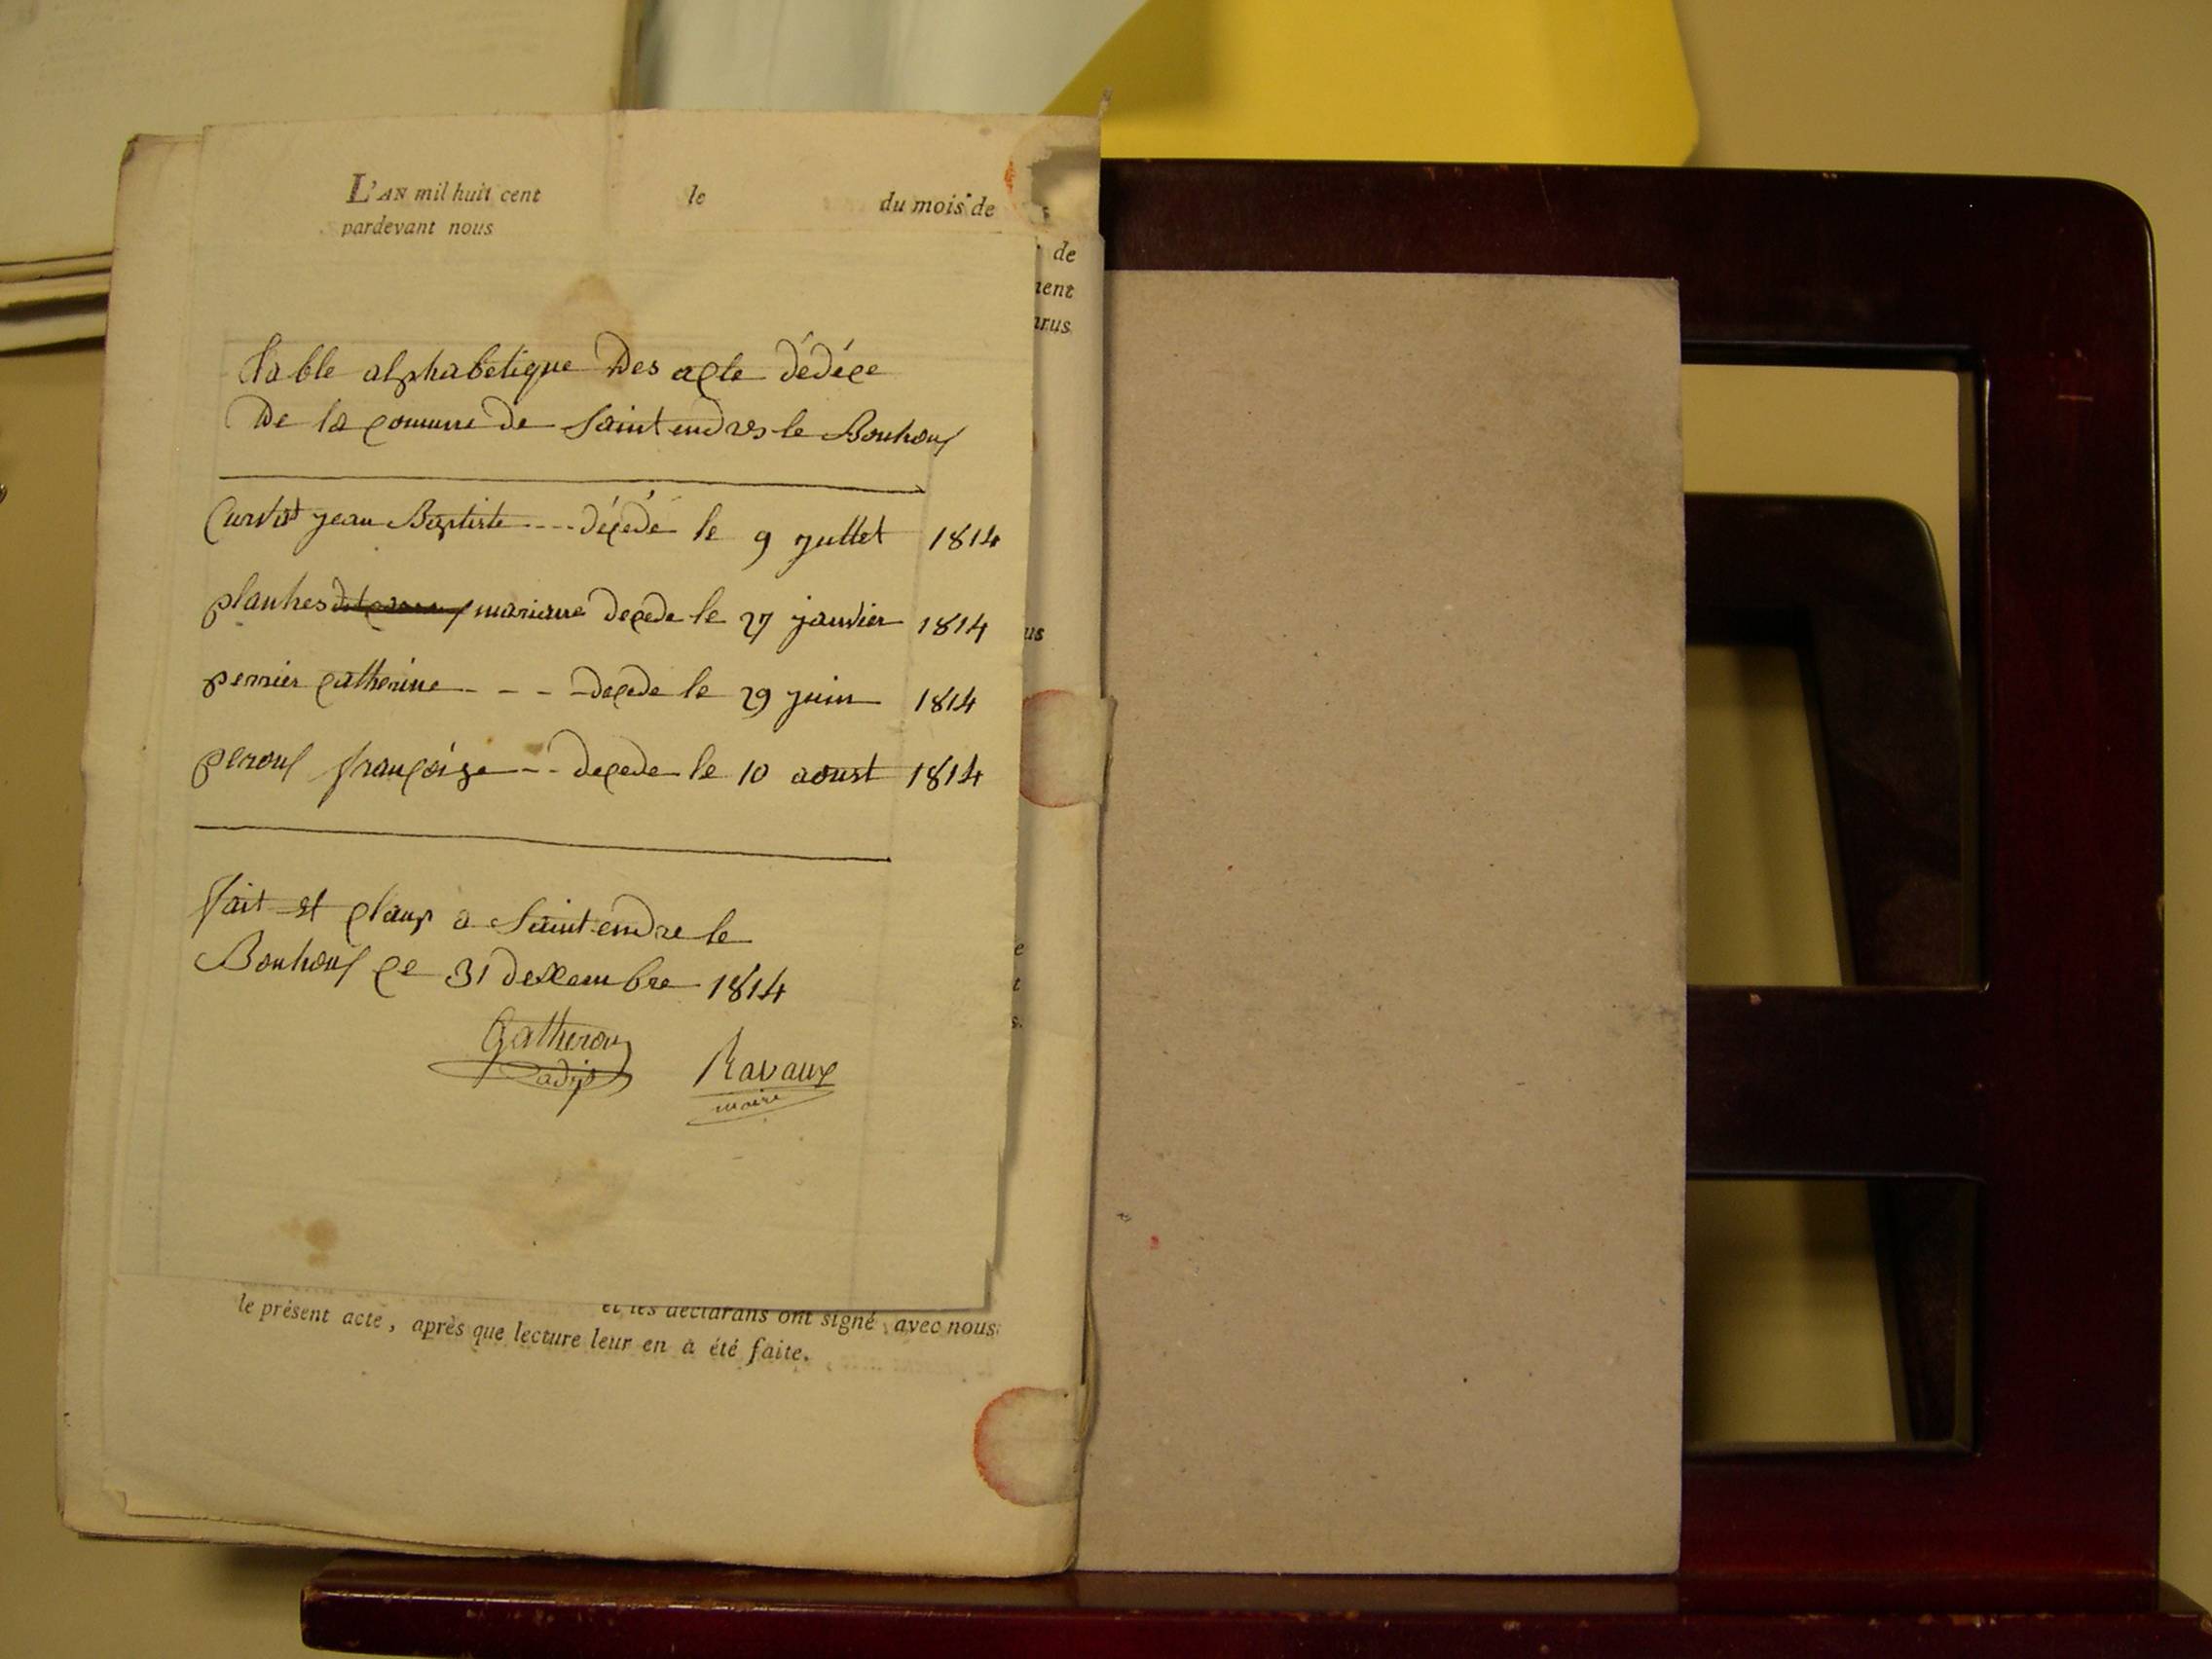 L'AN mil huit cent le du mois de
pardevant nous
de
nent
arus
table alphabetique Des acte dédéce
De la comune de Saint endres le Bouhous
Curtist jean Baptiste ---- décedé le 9 juttet 1814
planhes mariane decede le 27 janvier 1814
us
perrier catherine - - - decede le 29 juin 1814
perous françoise --- decede le 10 aoust 1814
fait et claus a Saint endre le
Bouhous ce 31 dexembre 1814
e
t
s.
Gatheron Ravaux
adjt maire
et les déclarans ont signé, avec nous
le présent acte, après que lecture leur en a été faite.